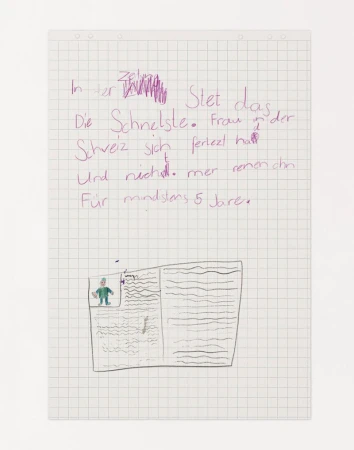 In der Zeitu Stet das
Die Schnelste. Frau in der
Schweiz sich ferlezt hat
Und nicht. mer renen chn
Für mindstens 5 Jare.